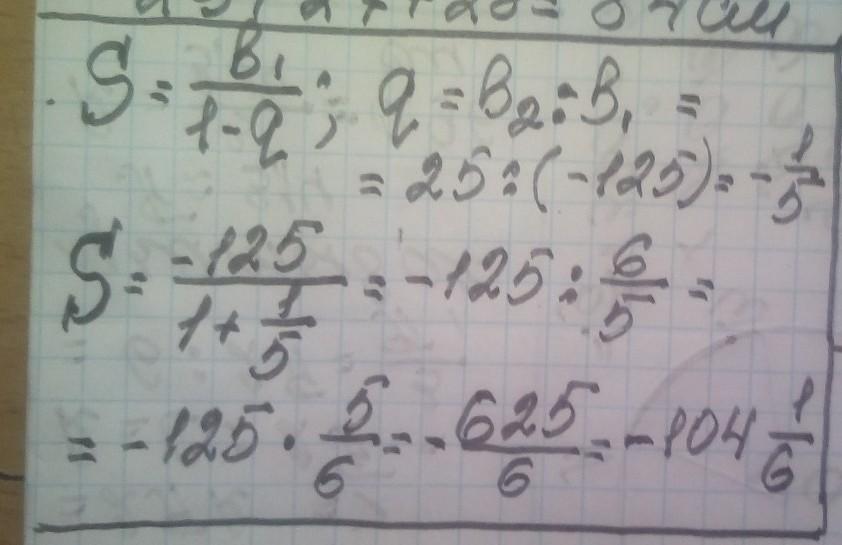 S = b₁/(1-q); q = b₂:b₁ =
= 25:(-125) = -1/5
S = -125/(1+1/5) = -125 : 6/5 =
= -125 · 5/6 = -625/6 = -104 1/6